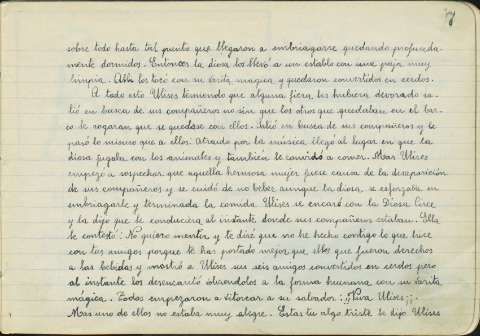 7
sobre todo hasta tal punto que llegaron a embriagarse quedando profunda-
mente dormidos. Entonces la diosa los llevó a un establo con una paja muy
limpia. Allí los tocó con su varita mágica y quedaron convertidos en cerdos.
A todo esto Ulises temiendo que alguna fiera les hubiera devorado sa-
lió en busca de sus compañeros no sin que los otros que quedaban en el bar-
co le rogaran que se quedase con ellos. Salió en busca de sus compañeros y le
pasó lo mismo que a ellos. Atraido por la música llegó al lugar en que la
diosa jugaba con los animales y también le convidó a comer. Mas Ulises
empezó a sospechar que aquella hermosa mujer fuese causa de la desaparición
de sus compañeros y se cuidó de no beber aunque la diosa, se esforzaba en
embriagarle y terminada la comida Ulises se encaró con la Diosa Circe
y la dijo que le condujera al instante donde sus compañeros estaban. Ella
le contestó: No quiero mentir y te diré que no he hecho contigo lo que hice
con tus amigos porque te has portado mejor que ellos que fueron derechos
a las bebidas y mostró a Ulises sus seis amigos convertidos en cerdos pero
al instante los desencantó volviendolos a la forma humana con su varita
mágica. Todos empezaron a vitorear a su salvador. ¡¡Viva Ulises¡¡.
Mas uno de ellos no estaba muy alegre. Estas tu algo triste le dijo Ulises